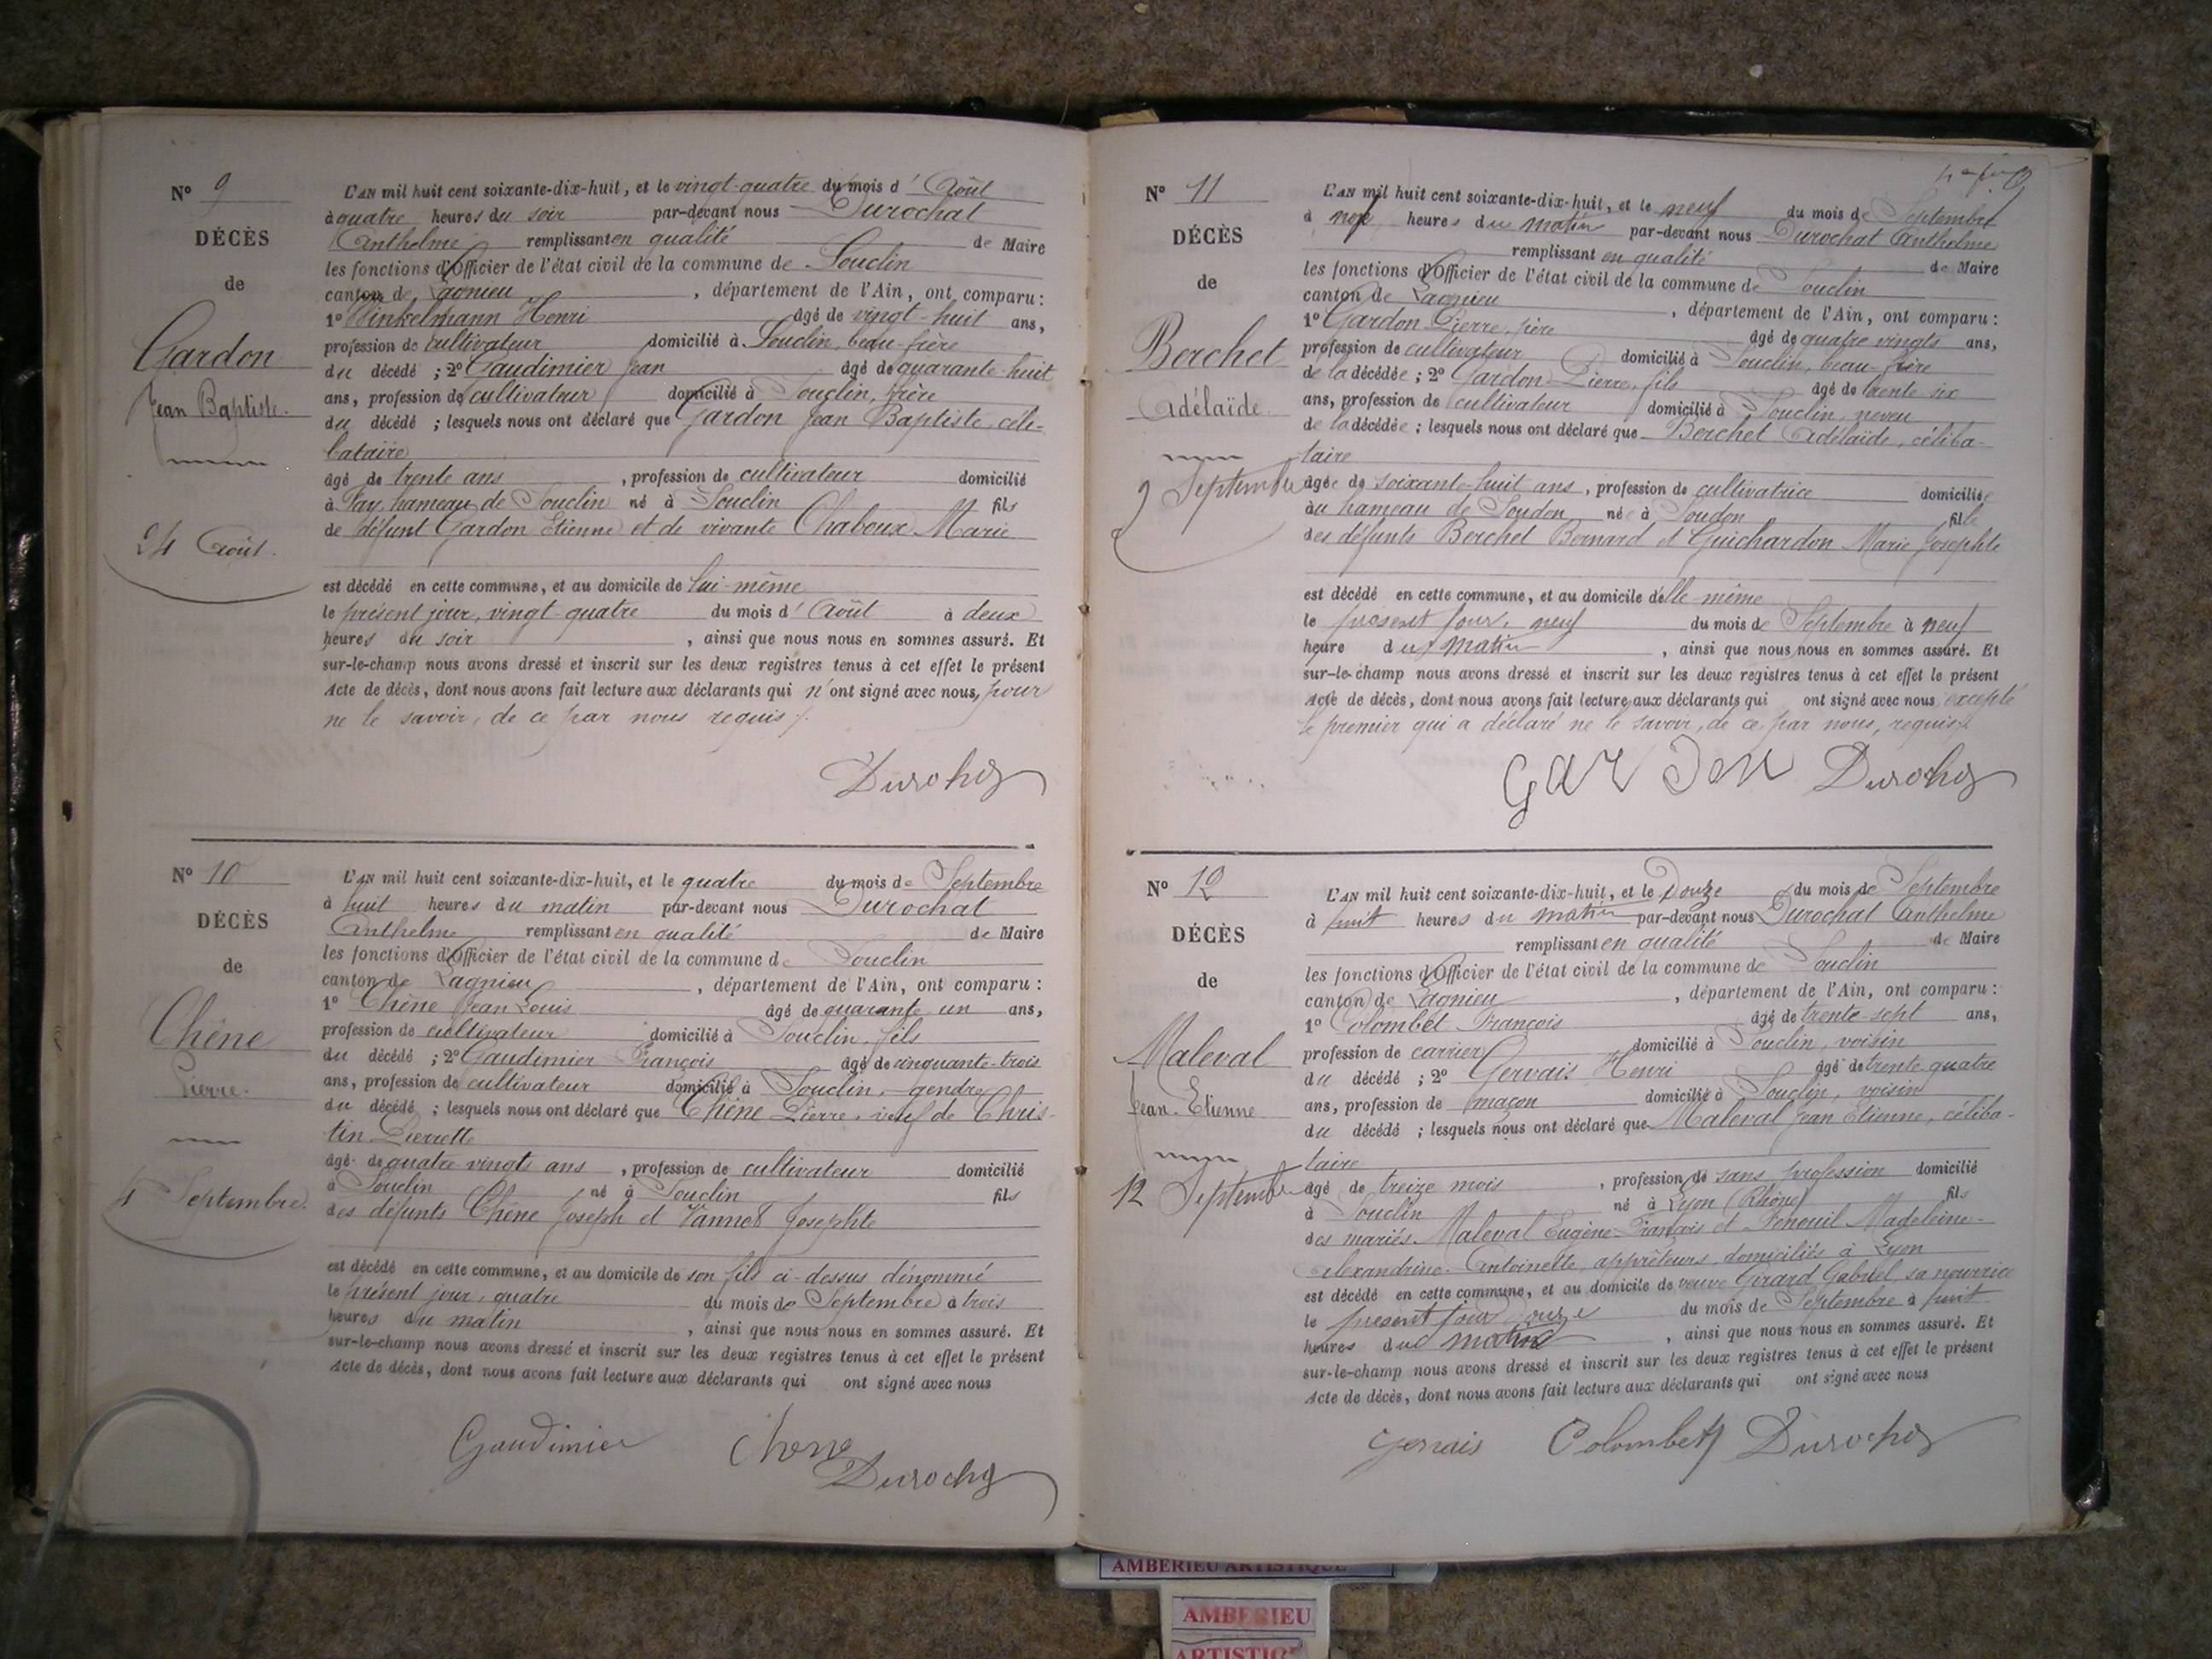 N° 9
DÉCÈS
de
Gardon
Jean Baptiste.
24 Août.
L'AN mil huit cent soixante-dix-huit, et le vingt-quatre du mois d'Août
à quatre heures du soir par-devant nous Durochat
Anthelme remplissant en qualité de Maire
les fonctions d'Officier de l'état civil de la commune de Souclin
canton de Lagnieu, département de l'Ain, ont comparu :
1° Winkelmann Henri âgé de vingt-huit ans,
profession de cultivateur domicilié à Souclin, beau-frère
du décédé ; 2° Gaudimier Jean âgé de quarante-huit
ans, profession de cultivateur domicilié à Souclin, frère
du décédé ; lesquels nous ont déclaré que Gardon Jean Baptiste, céli-
bataire
âgé de trente ans, profession de cultivateur domicilié
à Fay, hameau de Souclin né à Souclin fils
de défunt Gardon Etienne et de vivante Chaboux Marie
est décédé en cette commune, et au domicile de lui-même
le présent jour, vingt-quatre du mois d'Août à deux
heures du soir, ainsi que nous nous en sommes assuré. Et
sur-le-champ nous avons dressé et inscrit sur les deux registres tenus à cet effet le présent
Acte de décès, dont nous avons fait lecture aux déclarants qui n'ont signé avec nous, pour
ne le savoir, de ce par nous requis.
Durochat
N° 10
DÉCÈS
de
Chêne
Pierre.
4 Septembre.
L'AN mil huit cent soixante-dix-huit, et le quatre du mois de Septembre
à huit heures du matin par-devant nous Durochat
Anthelme remplissant en qualité de Maire
les fonctions d'Officier de l'état civil de la commune de Souclin
canton de Lagnieu, département de l'Ain, ont comparu :
1° Chêne Jean Louis âgé de quarante un ans,
profession de cultivateur domicilié à Souclin, fils
du décédé ; 2° Gaudimier François âgé de cinquante-trois
ans, profession de cultivateur domicilié à Souclin, gendre
du décédé ; lesquels nous ont déclaré que Chêne Pierre, veuf de Chris-
tin Pierrette
âgé de quatre vingts ans, profession de cultivateur domicilié
à Souclin né à Souclin fils
des défunts Chêne Joseph et Vannet Josephte
est décédé en cette commune, et au domicile de son fils ci-dessus dénommé
le présent jour, quatre du mois de Septembre à trois
heures du matin, ainsi que nous nous en sommes assuré. Et
sur-le-champ nous avons dressé et inscrit sur les deux registres tenus à cet effet le présent
Acte de décès, dont nous avons fait lecture aux déclarants qui ont signé avec nous
Gaudimier Chene
Durochat
N° 11
DÉCÈS
de
Berchet
Adélaïde.
9 Septembre
L'AN mil huit cent soixante-dix-huit, et le neuf du mois de Septembre
à neuf heures du matin par-devant nous Durochat Anthelme
remplissant en qualité de Maire
les fonctions d'Officier de l'état civil de la commune de Souclin
canton de Lagnieu, département de l'Ain, ont comparu :
1° Gardon Pierre, père âgé de quatre vingts ans,
profession de cultivateur domicilié à Souclin, beau-frère
de la décédée ; 2° Gardon Pierre, fils âgé de trente six
ans, profession de cultivateur domicilié à Souclin, neveu
de la décédée ; lesquels nous ont déclaré que Berchet Adélaïde, céliba-
taire
âgée de soixante-huit ans, profession de cultivatrice domiciliée
au hameau de Soudon née à Soudon fille
des défunts Berchet Bernard et Guichardon Marie Josephte
est décédé en cette commune, et au domicile d'elle-même
le présent jour, neuf du mois de Septembre à neuf
heure du matin, ainsi que nous nous en sommes assuré. Et
sur-le-champ nous avons dressé et inscrit sur les deux registres tenus à cet effet le présent
Acte de décès, dont nous avons fait lecture aux déclarants qui ont signé avec nous excepté
le premier qui a déclaré ne le savoir, de ce par nous, requis.
Gardon Durochat
N° 12
DÉCÈS
de
Maleval
Jean-Etienne
12 Septembre
L'AN mil huit cent soixante-dix-huit, et le Douze du mois de Septembre
à huit heures du matin par-devant nous Durochat Anthelme
remplissant en qualité de Maire
les fonctions d'Officier de l'état civil de la commune de Souclin
canton de Lagnieu, département de l'Ain, ont comparu :
1° Colombet François âgé de trente-sept ans,
profession de carrier domicilié à Souclin, voisin
du décédé ; 2° Gervais Henri âgé de trente quatre
ans, profession de maçon domicilié à Souclin, voisin
du décédé ; lesquels nous ont déclaré que Maleval Jean Etienne, céliba-
taire
âgé de treize mois, profession de sans profession domicilié
à Souclin né à Lyon (Rhône) fils
des mariés Maleval Eugène-François et Fenouil Madeleine-
Alexandrine-Antoinette, apprêteurs, domiciliés à Lyon
est décédé en cette commune, et au domicile de veuve Girard Gabriel, sa nourrice
le présent jour douze du mois de Septembre à huit
heures du matin, ainsi que nous nous en sommes assuré. Et
sur-le-champ nous avons dressé et inscrit sur les deux registres tenus à cet effet le présent
Acte de décès, dont nous avons fait lecture aux déclarants qui ont signé avec nous
Gervais Colombet Durochat
AMBERIEU ARTISTIQUE
AMBERIEU
ARTISTIQUE